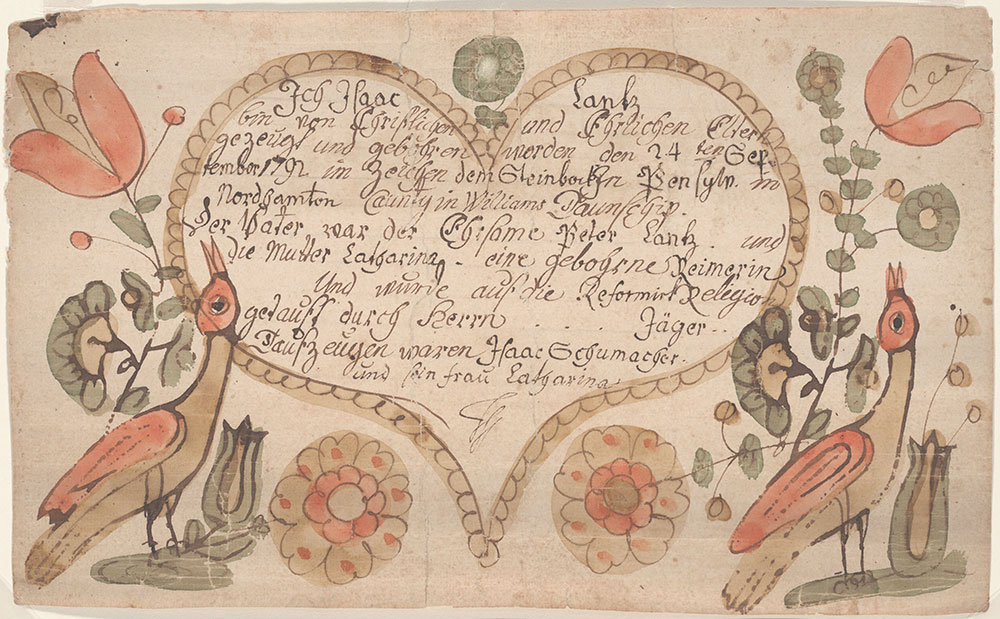 Ich Isaac Lantz
bin von Christlichen und Ehrlichen Eltern
gezeugt und gebohren werden den 24 ten Sep
tember 1792 im Zeichen dem Steinbock In Pensylv. in
Nordhamton Caunty in Williams Taunschip.
Der Vater war der Ehrsame Peter Lantz und
die Mutter Catharina eine gebohrne Reimerin
Und wurde auf die Reformirt Religio
getauft durch Herrn . . . . Jäger . .
Taufzeugen waren Isaac Schumacher.
und sein frau Catharina